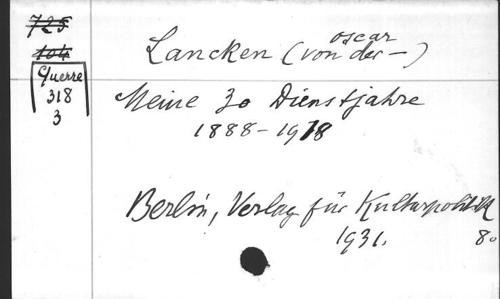 725
104
Guerre
318
3
Lancken (von der —)
oscar
Meine 30 Dienstjahre
1888-1918
Berlin, Verlag für Kulturpolitik
1931.
8°